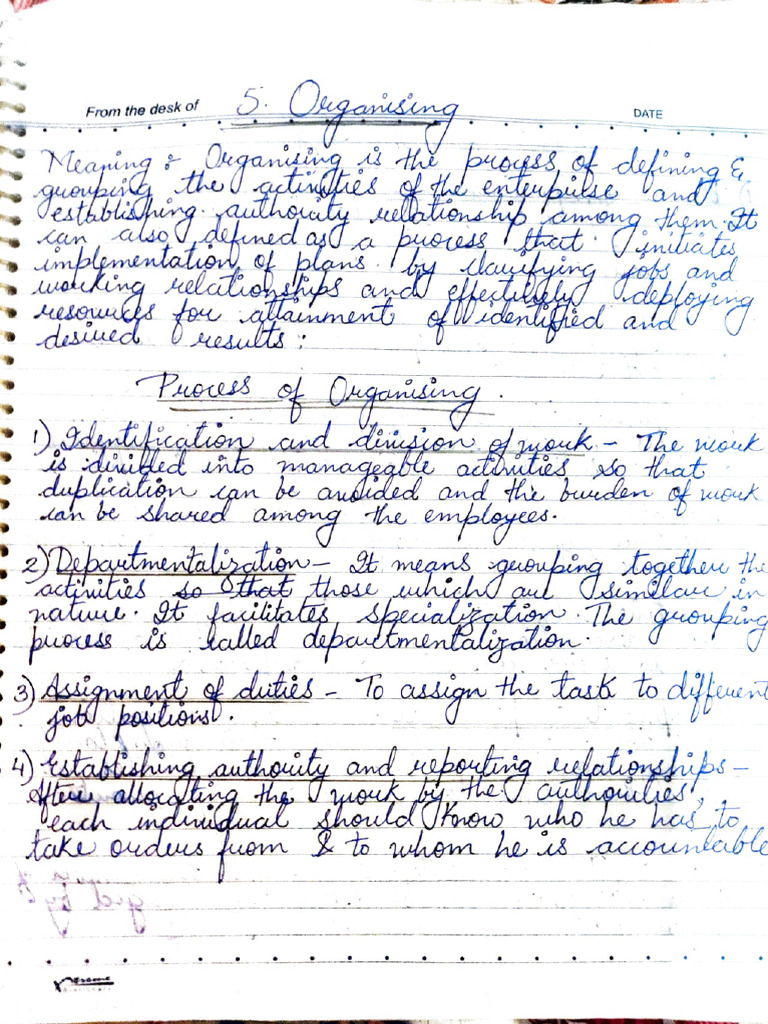 From the desk of 5. Organising DATE
Meaning : Organising is the process of defining &
grouping the activities of the enterprise and
establishing authority relationship among them. It
can also defined as a process that initiates
implementation of plans by clarifying jobs and
working relationships and effectively deploying
resources for attainment of identified and
desired results :
Process of Organising.
1) Identification and division of work - The work
is divided into manageable activities so that
duplication can be avoided and the burden of work
can be shared among the employees.
2) Departmentalization - It means grouping together the
activities so that those which are similar in
nature. It facilitates specialization. The grouping
process is called departmentalization.
3) Assignment of duties - To assign the task to different
job positions.
4) Establishing authority and reporting relationships -
After allocating the work by the authorities,
each individual should know who he has to
take orders from & to whom he is accountable